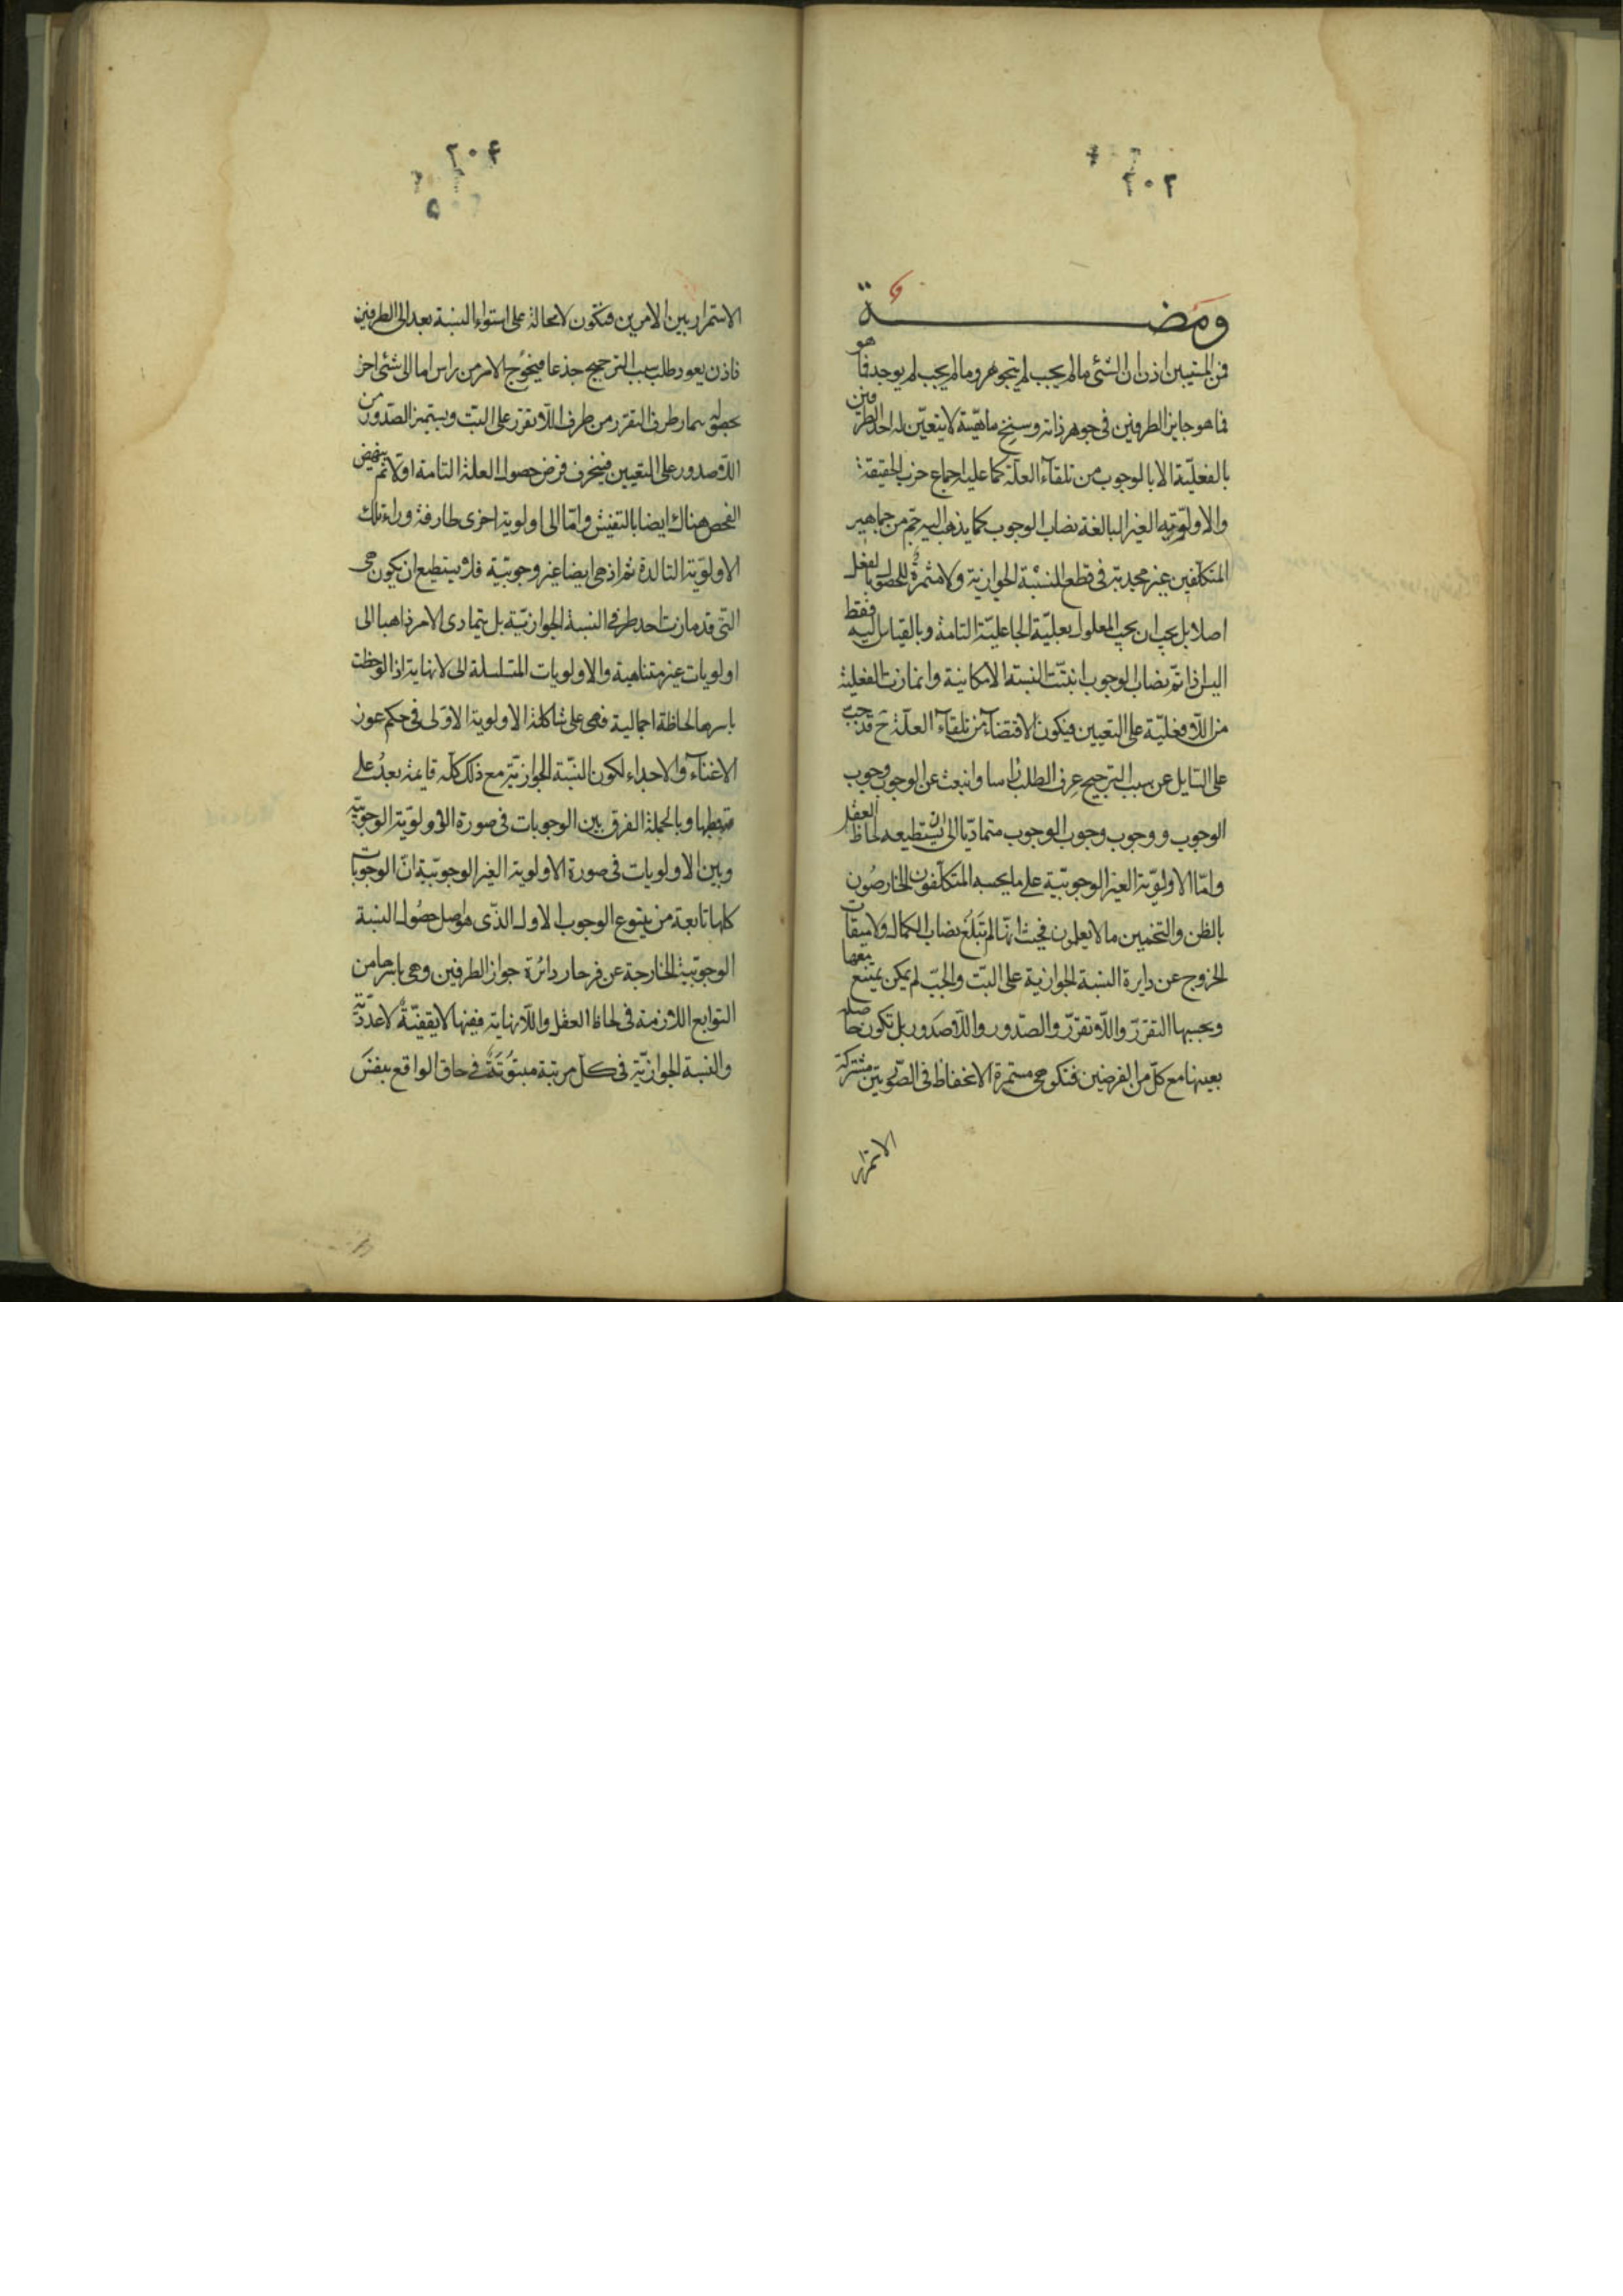 ٢٠٢
ومضة
فمن المستبين اذن ان الشئ ما لم يجب لم يتجوهر وما لم يجب لم يوجد
فما هو جايز الطرفين فى جوهر ذاته وسنخ ماهيّته لا يتعيّن له احد الطرفين
بالفعليّة الا بالوجوب من تلقاء العلّة كما عليه اجماع حزب الحقيقة
والاولوية الغير البالغة نصاب الوجوب كما يذهب اليه جمّ من جماهير
المتكلّفين غير مجدية فى قطع النسبة الجوازية ولا مثمرة للحصول بالفعل
اصلا بل يجب ان يجب المعلول بعليّة الجاعليّة التامة وبالقياس اليه فقط
اليس اذا تم نصاب الوجوب انبتّت النسبة الامكانية وانمازت الفعلية
من اللافعليّة على التعيين فيكون الاقتضاء من تلقاء العلّة ح قد
على السايل عن سبب الترجيح عرق الطلب راسا وانبعث عن الوجوب وجوب
الوجوب ووجوب وجوب الوجوب متماديّا الى ان يستطيعه لحاظ العقل
وامّا الاولويّة الغير الوجوبيّة على ما يحسبه المتكلّفون الخارصُون
بالظن والتخمين ما لا يعلمون فحيث انّها لم تَبلُغ نصاب الكمال ولا ميقات
الخروج عن دايرة النسبة الجوازية على البتّ والجبّ لم يكن يمتنع معها
وبحسبها التقرّر واللاتقرّر والصّدور واللاصَدور بل تكون حاصلة
بعينها مع كلّ من الفرضين فتكون هى مستمرة الانحفاظ فى الصّورتين مشتركة
الاستمرار
٢٠٤
٥
الاستمرار بين الامرين فتكون لا محالة على استواء النسبة بعد الى الطرفين
فاذن يعود طلب سبب الترجيح جذعا فيحوُج الامر من راس اما الى شئ اخر
طرف التقرر من طرف اللاتقرر على البتّ ويستميز الصّدور من
اللاصدور على التعيين فيخرق فرض حصول العلة التامة اوّلا ثم ينهض
الفحص هناك ايضا بالتفتيش وامّا الى اولوية اخرى طارفة وراء تلك
الاولويّة التالدة ثم اذ هى ايضا غير وجوبيّة فلا يستطيع ان يكون هى
التى قد مازت احد طرفى النسبة الجوازيّة بل يتمادى الامر ذاهبا الى
اولويات غير متناهية والاولويات المتسلسلة الى لا نهاية اذا لوحظت
باسرها لحاظة اجمالية فهى على شاكلة الاولوية الاولى فى حكم عوز
الاغناء والاجداء لكون النسّبة الجوازيّة مع ذلك كلّه قائمة بعدُ على
وبالجملة الفرق بين الوجوبات فى صورة الاولويّة الوجوبيّة
وبين الاولويات فى صورة الاولوية الغير الوجوبيّة انّ الوجوبات
كلها تابعة من ينبوع الوجوب الاول الذّى هو اصل حصُول النسبة
الوجوبيّة الخارجة عن فرجار دائرة جواز الطرفين وهى باسرها من
التوابع اللازمة فى لحاظ العقل واللانهاية فيها لا يقفيّةٌ لا عدّديّة
والنسبة الجوازيّة فى كل مرتبة مبتوُتَةٌ فى حاق الواقع بنفسَ